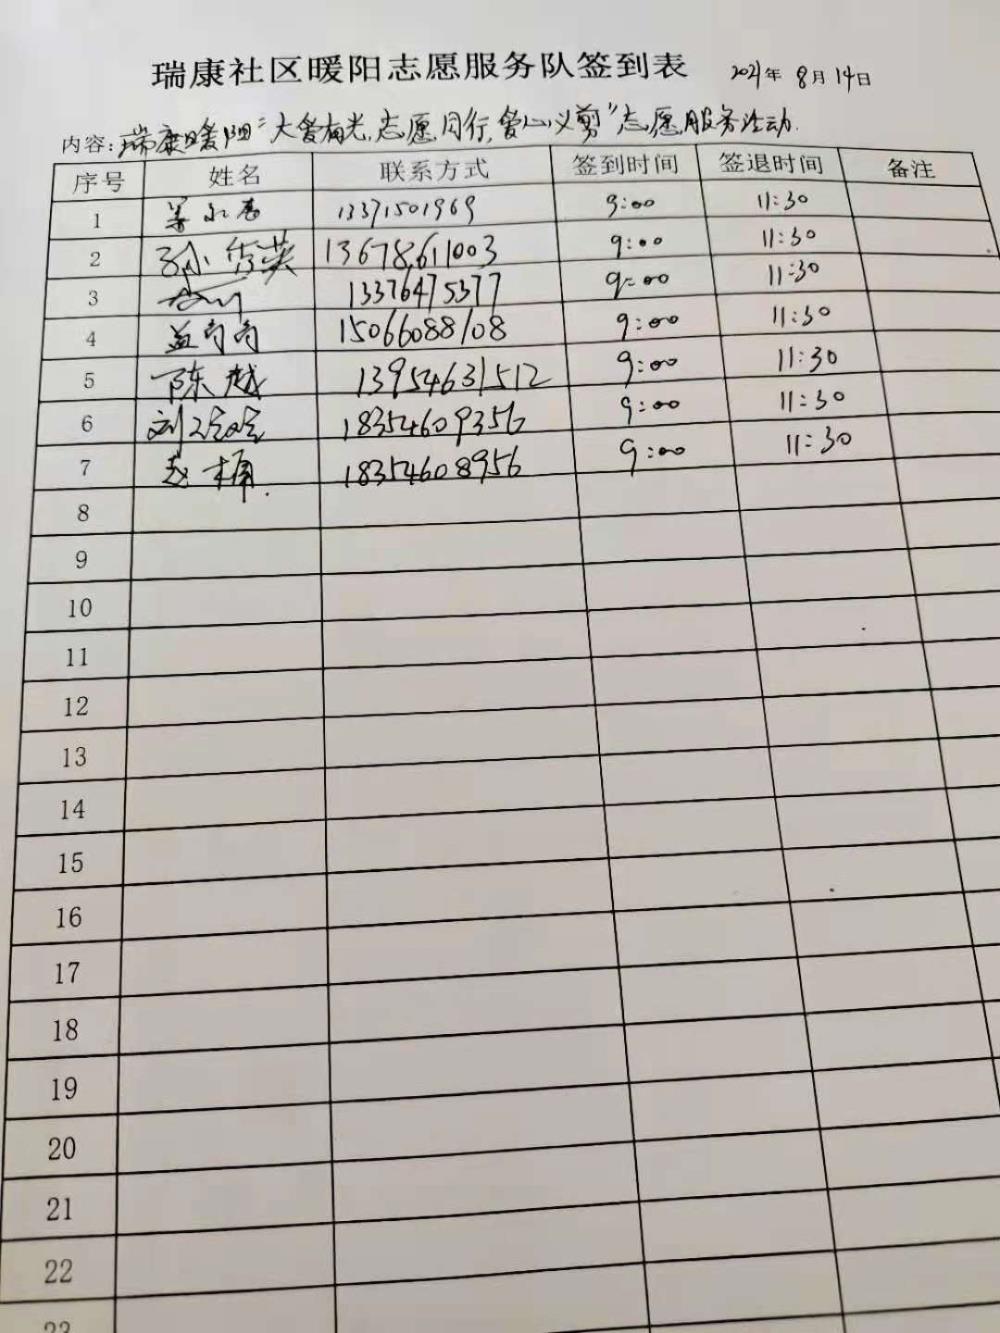 瑞康社区暖阳志愿服务队签到表 2021年 8月 14日
内容: 瑞康暖阳“大爱有光,志愿同行,爱心义剪”志愿服务活动.
序号 姓名 联系方式 签到时间 签退时间 备注
1 13371501969 9:00 11:30
2 孙秀英 13678611003 9:00 11:30
3 13376475377 9:00 11:30
4 15066088108 9:00 11:30
5 陈越 13954631512 9:00 11:30
6 刘 18354609356 9:00 11:30
7 赵楠. 18354608956 9:00 11:30
8
9
10
11
12
13
14
15
16
17
18
19
20
21
22
23